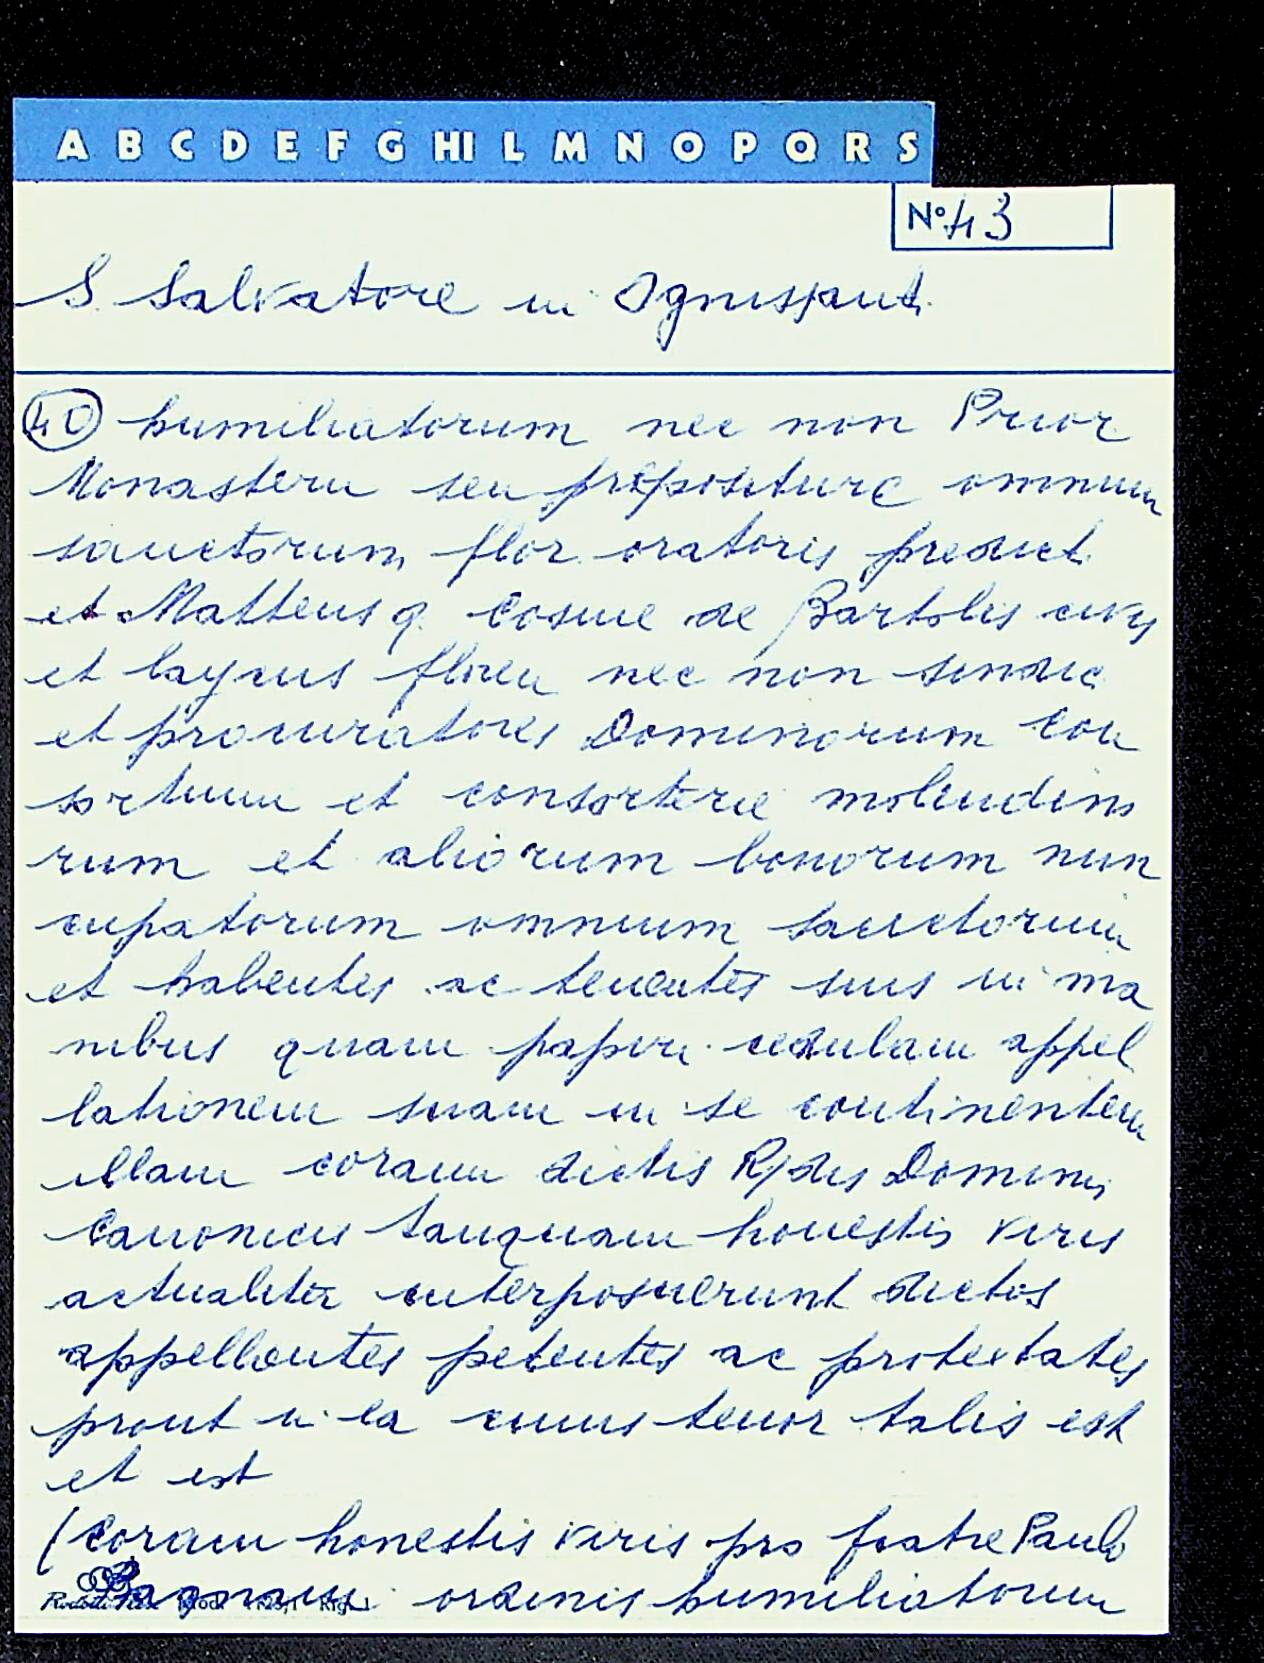 A B C D E F G HI L M N O P Q R S
N° 43
S. Salvatore in Ognissanti
40 humiliatorum nec non Prior
Monasterii seu prepositure omnium
sanctorum flor. oratoris predict.
et Mattheus q. Cosme de Bartolis civis
et laycus floren nec non sindic
et procuratores Dominorum con
sortium et consorterie molendino
rum et aliorum bonorum nun
cupatorum omnium sanctorum
et habentes ac tenentes suis in ma
nibus quam papiri cedulam appel
lationem suam in se continentem
illam coram dictis Rdis Dominis
Canonicis tanquam honestis viris
actualiter interposuerunt dictos
appellantes petentes ac protestates
prout in ea cuius tenor talis est
et est
(coram honestis viris pro fratre Paulo
ordinis humiliatorum